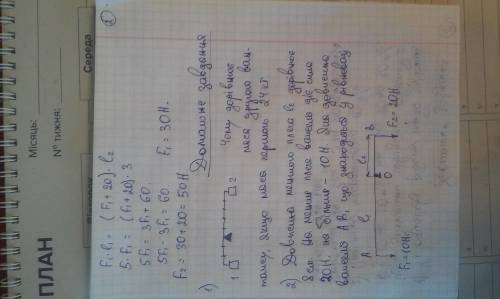 ПЛАН
Місяць:
№ тижня:
Середа
2
F₁·l₁ = (F₁+20)·l₂
5·F₁ = (F₁+20)·3
5F₁ = 3F₁+60
5F₁ - 3F₁ = 60
F₂ = 30+20 = 50Н
F₁ = 30Н.
Домашнє завдання
1)
1
2
Чому дорівнює
маса другого ван-
тажу, якщо маса першого 24 кг
2) Довжина меншого плеча важеля дорівнює
8см. На менше плече важеля діє сила
20Н, на більше - 10Н. Яка довжина
важеля АВ, що знаходиться у рівновазі
A
l₁
O
l₂
B
F₁=10Н
F₂ = 20Н